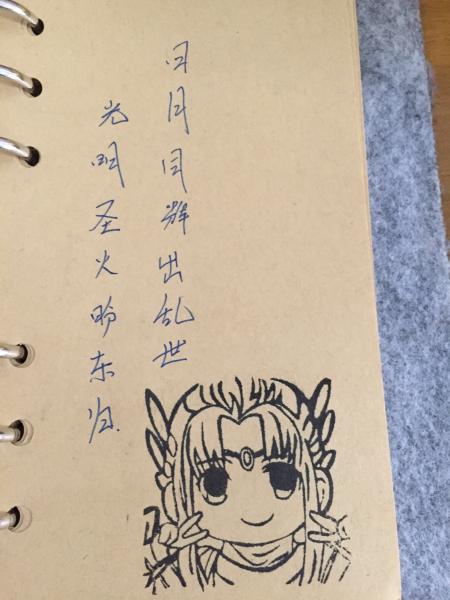 日月同辉出乱世
光明圣火盼东归